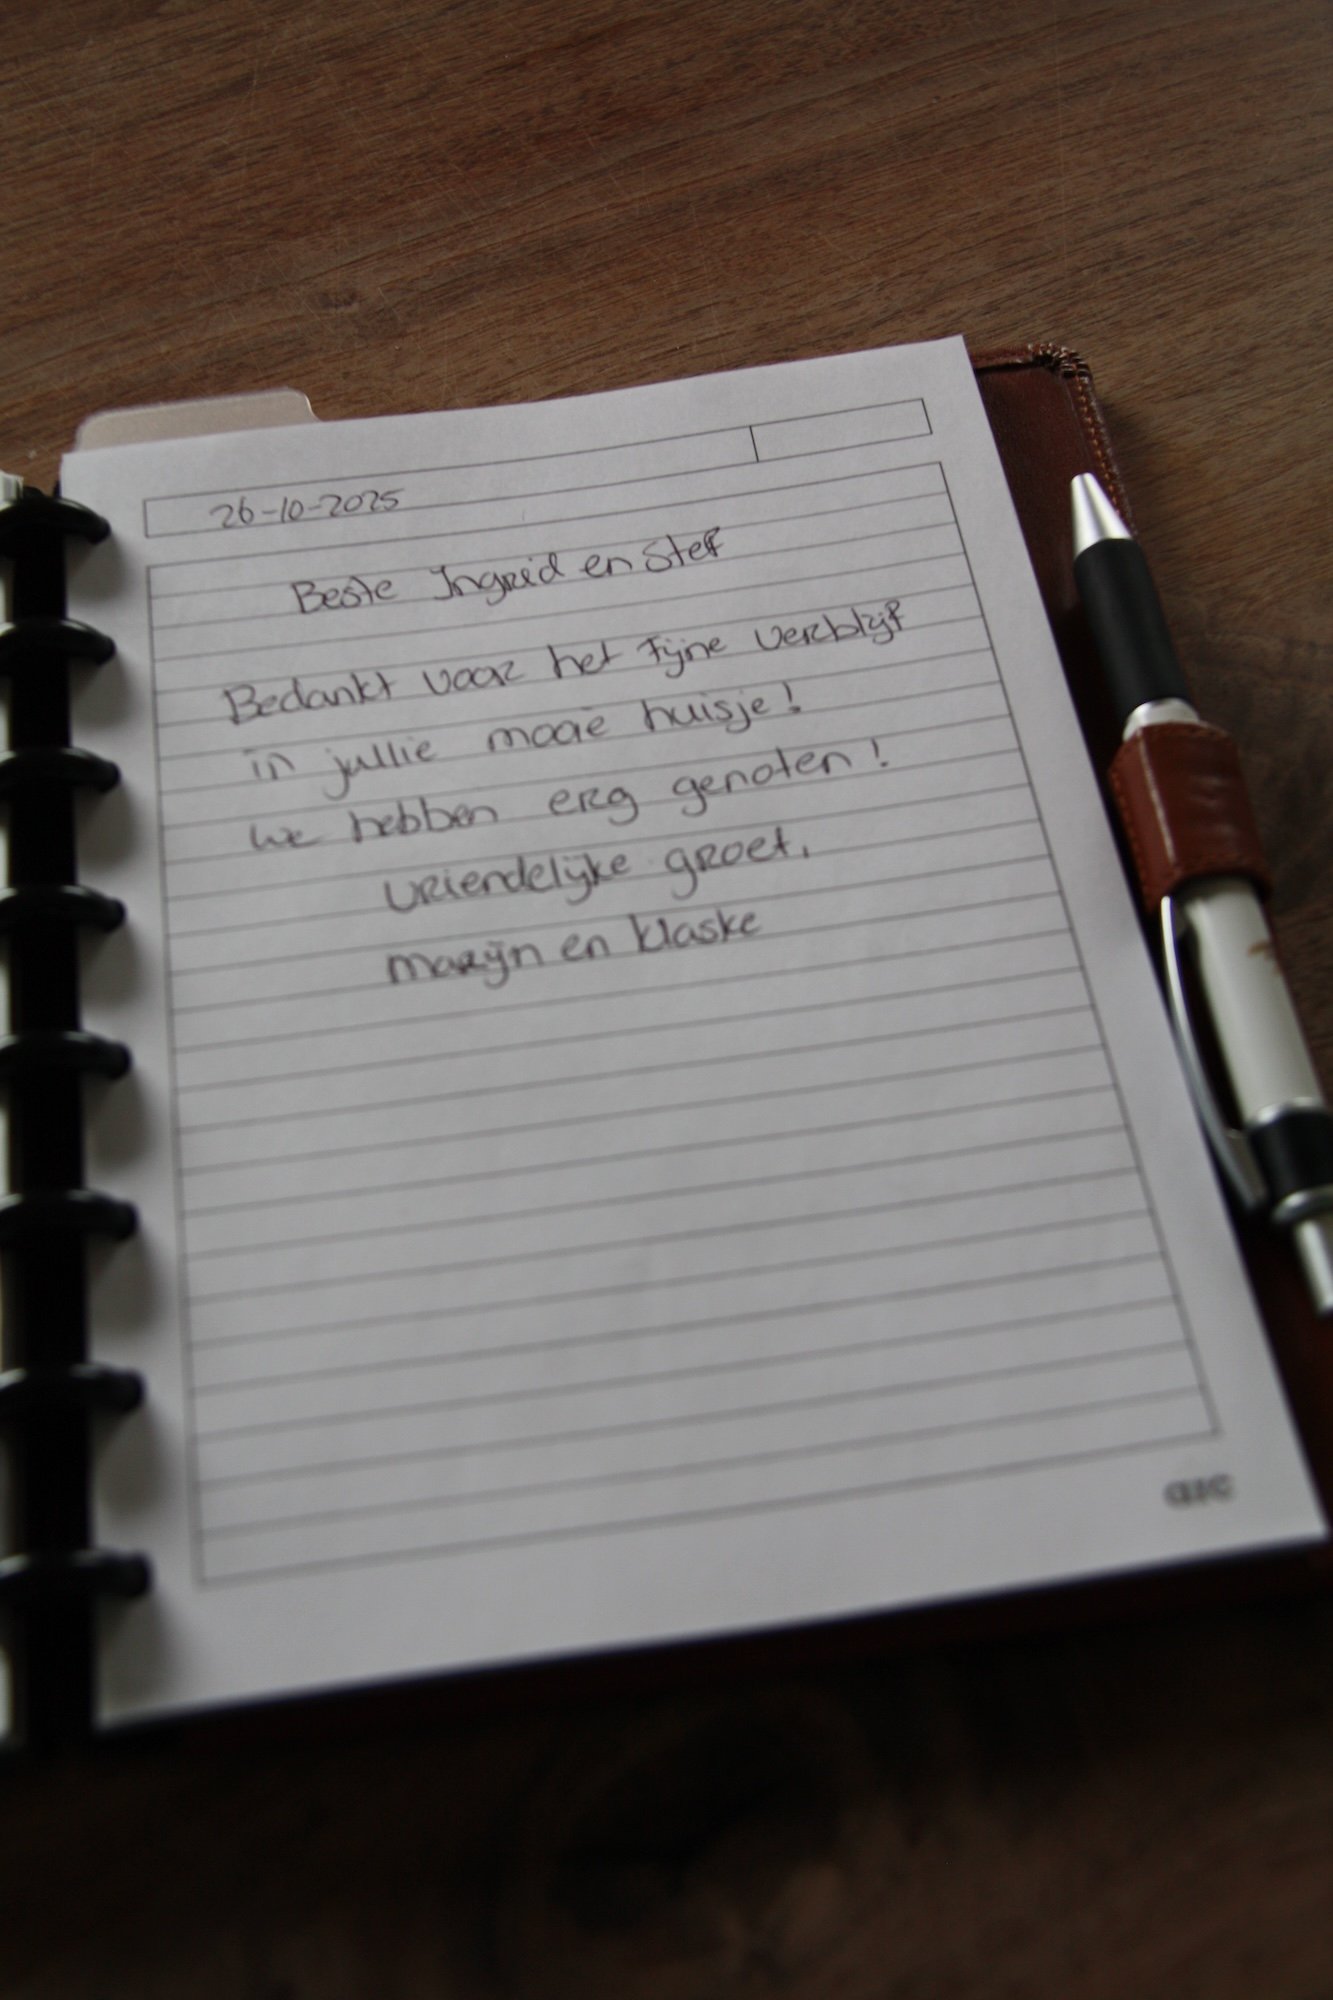 26-10-2025
Beste Ingrid en Stef
Bedankt voor het fijne verblijf
in jullie mooie huisje!
We hebben erg genoten!
Vriendelijke groet,
Marijn en Klaske